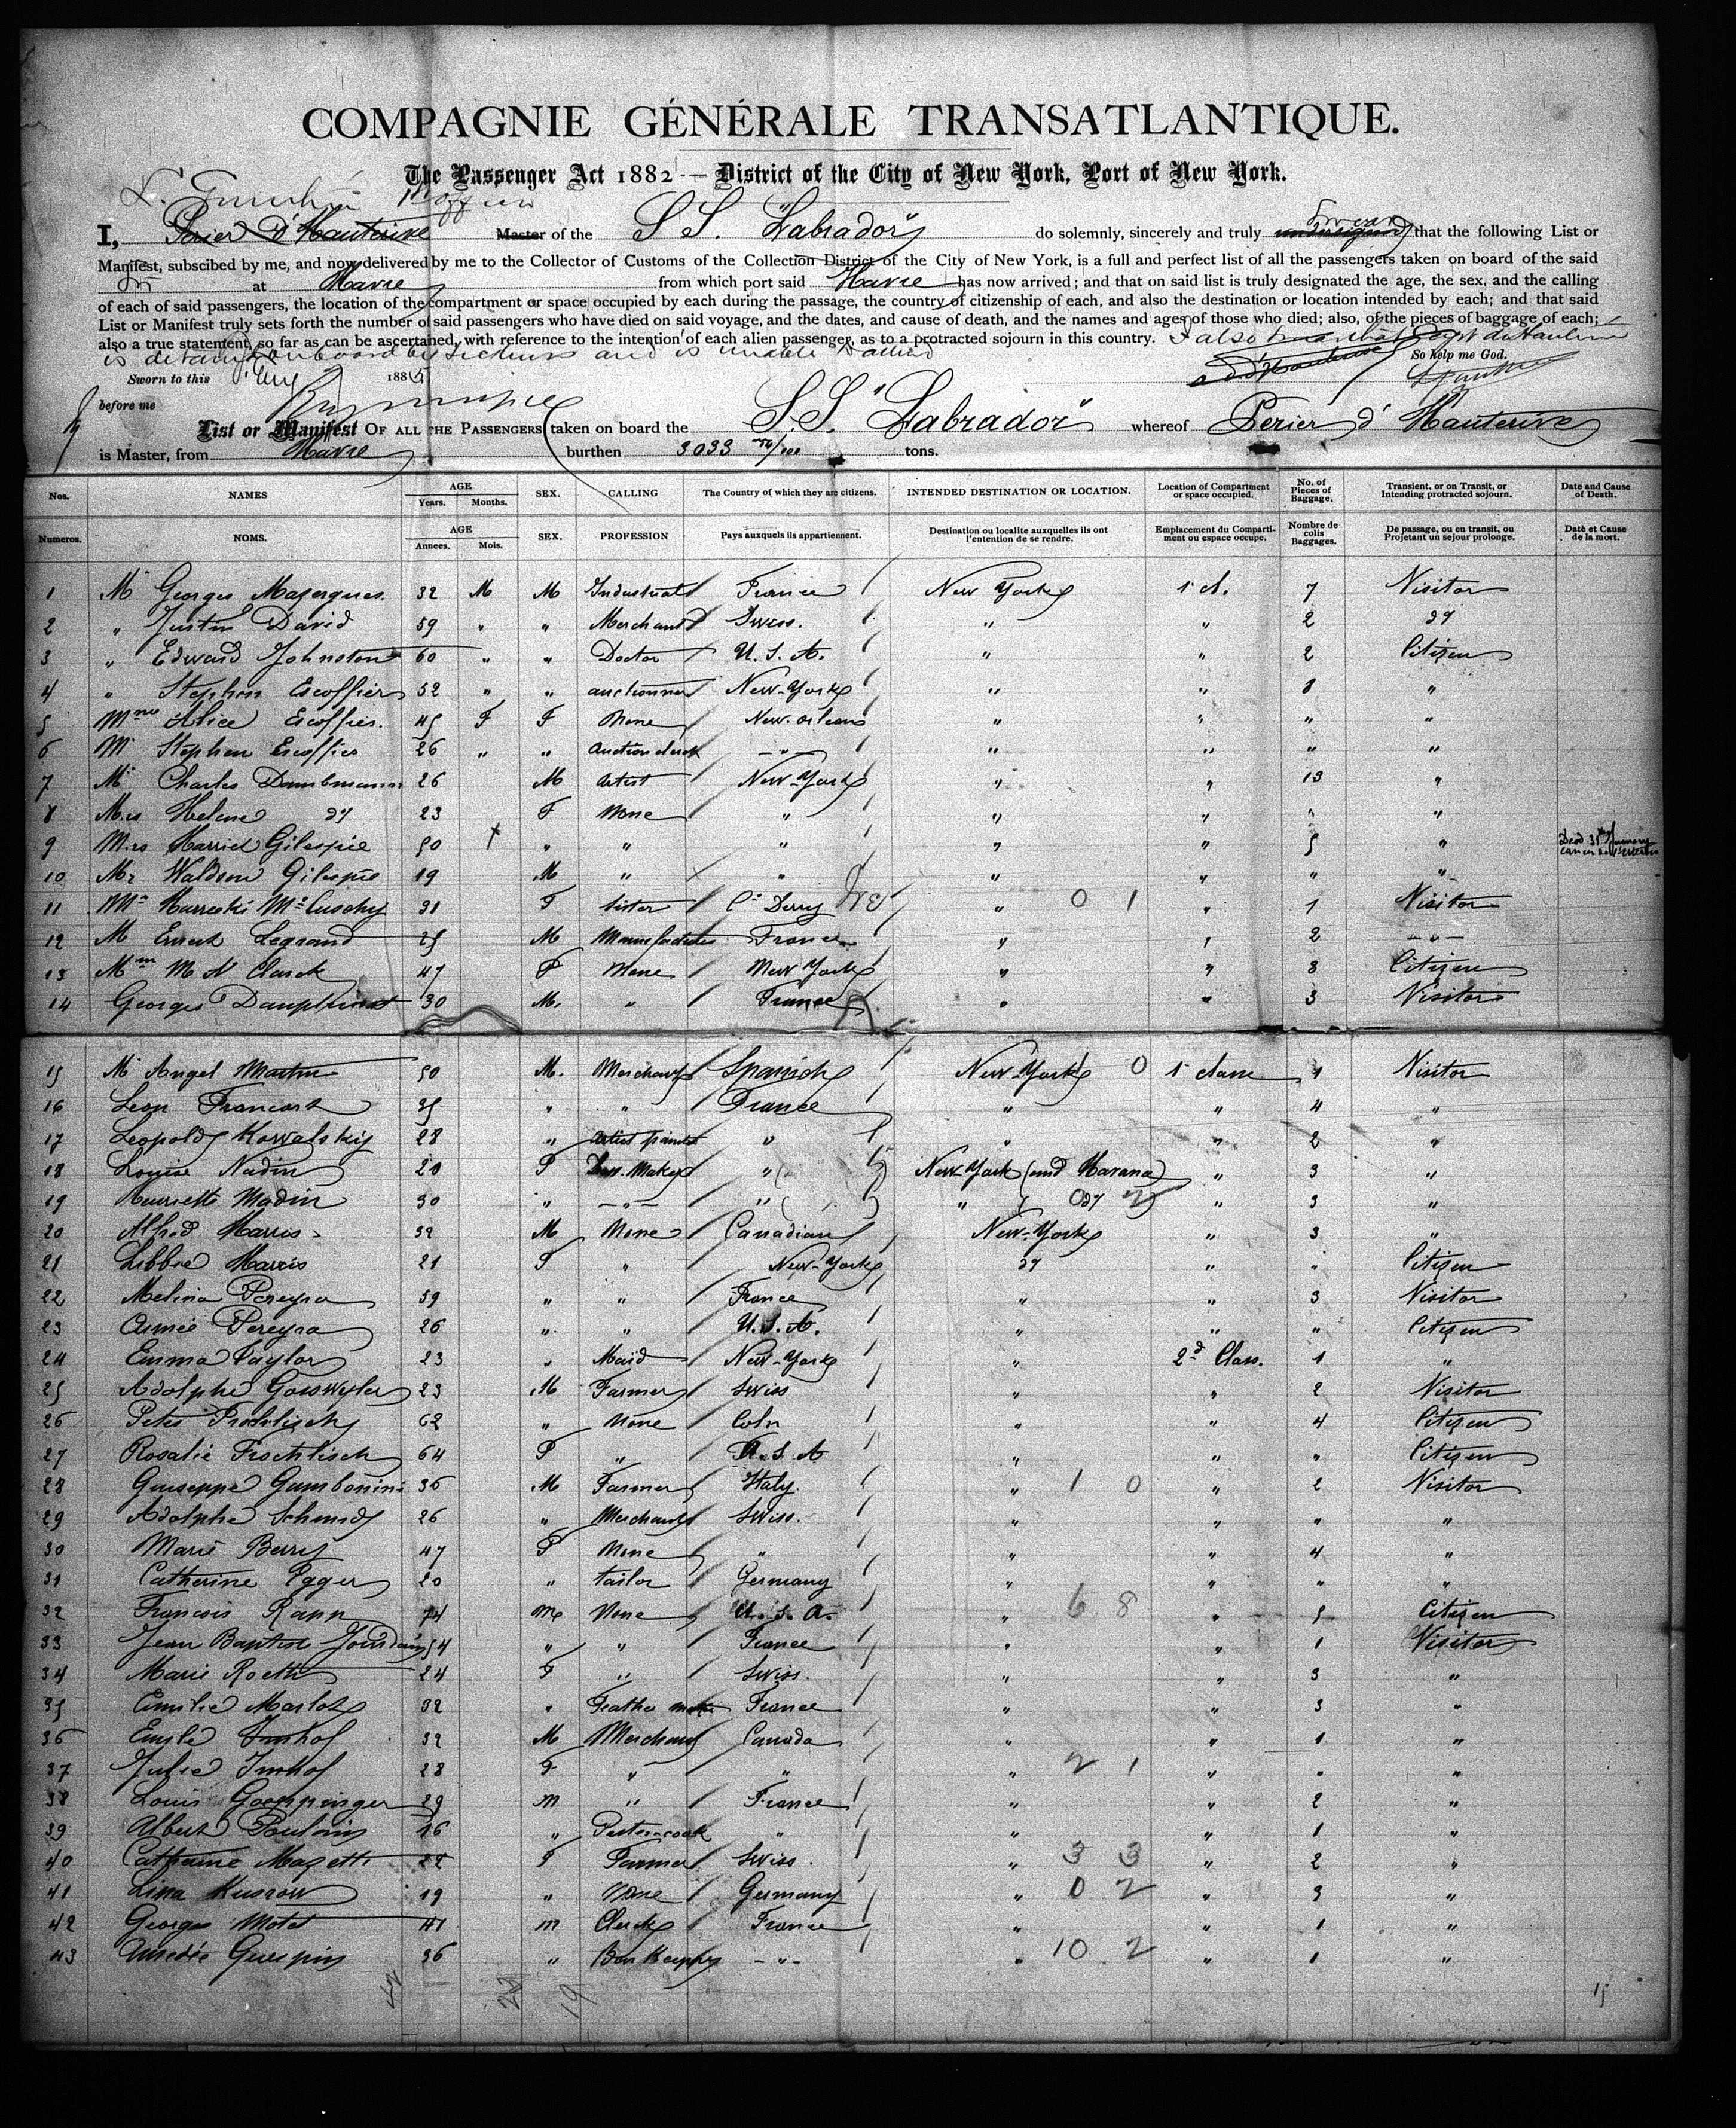 COMPAGNIE GÉNÉRALE TRANSATLANTIQUE.
The Passenger Act 1882 — District of the City of New York, Port of New York.
I, Perier d'Hauterive Master of the S S. "Labrador" do solemnly, sincerely and truly swear that the following List or
Manifest, subscibed by me, and now delivered by me to the Collector of Customs of the Collection District of the City of New York, is a full and perfect list of all the passengers taken on board of the said
at Havre from which port said Havre has now arrived; and that on said list is truly designated the age, the sex, and the calling
of each of said passengers, the location of the compartment or space occupied by each during the passage, the country of citizenship of each, and also the destination or location intended by each; and that said
List or Manifest truly sets forth the number of said passengers who have died on said voyage, and the dates, and cause of death, and the names and ages of those who died; also, of the pieces of baggage of each;
also a true statement, so far as can be ascertained, with reference to the intention of each alien passenger, as to a protracted sojourn in this country. I also
is detained on board by sickness and is unable to attend
So help me God.
Sworn to this 188
before me
List or Manifest OF ALL THE PASSENGERS taken on board the S.S. "Labrador" whereof Perier d' Hauterive
is Master, from Havre burthen 3033 tons.
Nos. NAMES AGE Years. Months. SEX. CALLING The Country of which they are citizens. INTENDED DESTINATION OR LOCATION. Location of Compartment or space occupied. No. of Pieces of Baggage. Transient, or on Transit, or Intending protracted sojourn. Date and Cause of Death.
Numeros. NOMS. AGE Annees. Mois. SEX. PROFESSION Pays auxquels ils appartiennent. Destination ou localite auxquelles ils ont l'entention de se rendre. Emplacement du Compartiment ou espace occupe. Nombre de colis Baggages. De passage, ou en transit, ou Projetant un sejour prolonge. Date et Cause de la mort.
1 Mr Georges Mazergues. 32 M M Industrial France New York 1 cl. 7 Visitor
2 " Justin David 59 " " Merchant Swiss. " " 2 dy
3 " Edward Johnston 60 " " Doctor U. S. A. " " 2 Citizen
4 " Stephen Escoffier 52 " " auctionner New-York " " 1 "
5 Mme Alice Escoffier. 45 F F None New-Orleans " " " "
6 Mr Stephen Escoffier 26 " " Auction clerk — " — " " " "
7 Mr Charles Dambmann 26 M Artist New-York " " 13 "
8 Mrs Helene dy 23 F None " " " " "
9 Mrs Harriet Gilespie 50 " " " " " 5 " Dead 31 January cancer
10 Mr Waldron Gilespie 19 M " " " " " "
11 31 F Sister Co Derry " 0 1 " 1 Visitor
12 M Ernest Legrand 25 M France " " 2 — " —
13 Mm M N Clarck 47 F None New York " " 8 Citizen
14 Georges Dauphinot 30 M. " France " " 3 Visitor
15 Mr Angel Martin 50 M. Merchant Spanish New-York 0 1 classe 1 Visitor
16 Leon Francort 35 " " France " " 4 "
17 Leopold Kowalsky 28 " Artist painter " " " 2 "
18 Louise Nadin 20 F Dres. Maker " New York (and Havana) " 3 "
19 Henriette Nadin 30 " — " — " " ( 0 dy 2) " 3 "
20 Alfred Harris 32 M None Canadian New-York " 3 "
21 Libbie Harris 21 F " New-York dy " " Citizen
22 Melina Pereyra 59 " " France " " 3 Visitor
23 Aimée Pereyra 26 " " U. S. A. " " " Citizen
24 Emma Taylor 23 " Maid New-York " 2d Class. 1 "
25 Adolphe Gosswyler 23 M Farmer Swiss " " 2 Visitor
26 Peter Frochlisch 62 " None " " 4 Citizen
27 Rosalie Frochlisch 64 F " U. S. A " " " Citizen
28 Guiseppe Gambonini 36 M Farmer Italy. " 1 0 " 2 Visitor
29 Adolphe Schmidt 26 " Merchant Swiss. " " " "
30 Marie Berry 47 F None " " " 4 "
31 Catherine Egger 20 " tailor Germany " " " "
32 Francois Rapp 74 M None U. S. A. " 6 8 " 5 Citizen
33 Jean Baptiste Jourdain 54 " " France " " 1 Visitor
34 Marie Roeth 24 F " Swiss. " " 3 "
35 Emilie Marlot 32 " Feather maker France " " 3 "
36 Emile Imhof 32 M Merchant Canada " " 1 "
37 Julie Imhof 28 F " " " 2 1 " " "
38 Louis Goeppinger 29 m " France " " 2 "
39 Albert Poulain 16 " Pastry-cook " " " 1 "
40 Catherine Mazetti 22 F Farmer Swiss. " 3 3 " 2 "
41 Lina Kussow 19 " None Germany " 0 2 " 3 "
42 Georges Motet 41 m Clerck France " " 1 "
43 Amedée Guespin 36 " — " — " 10 2 " 1 "
15